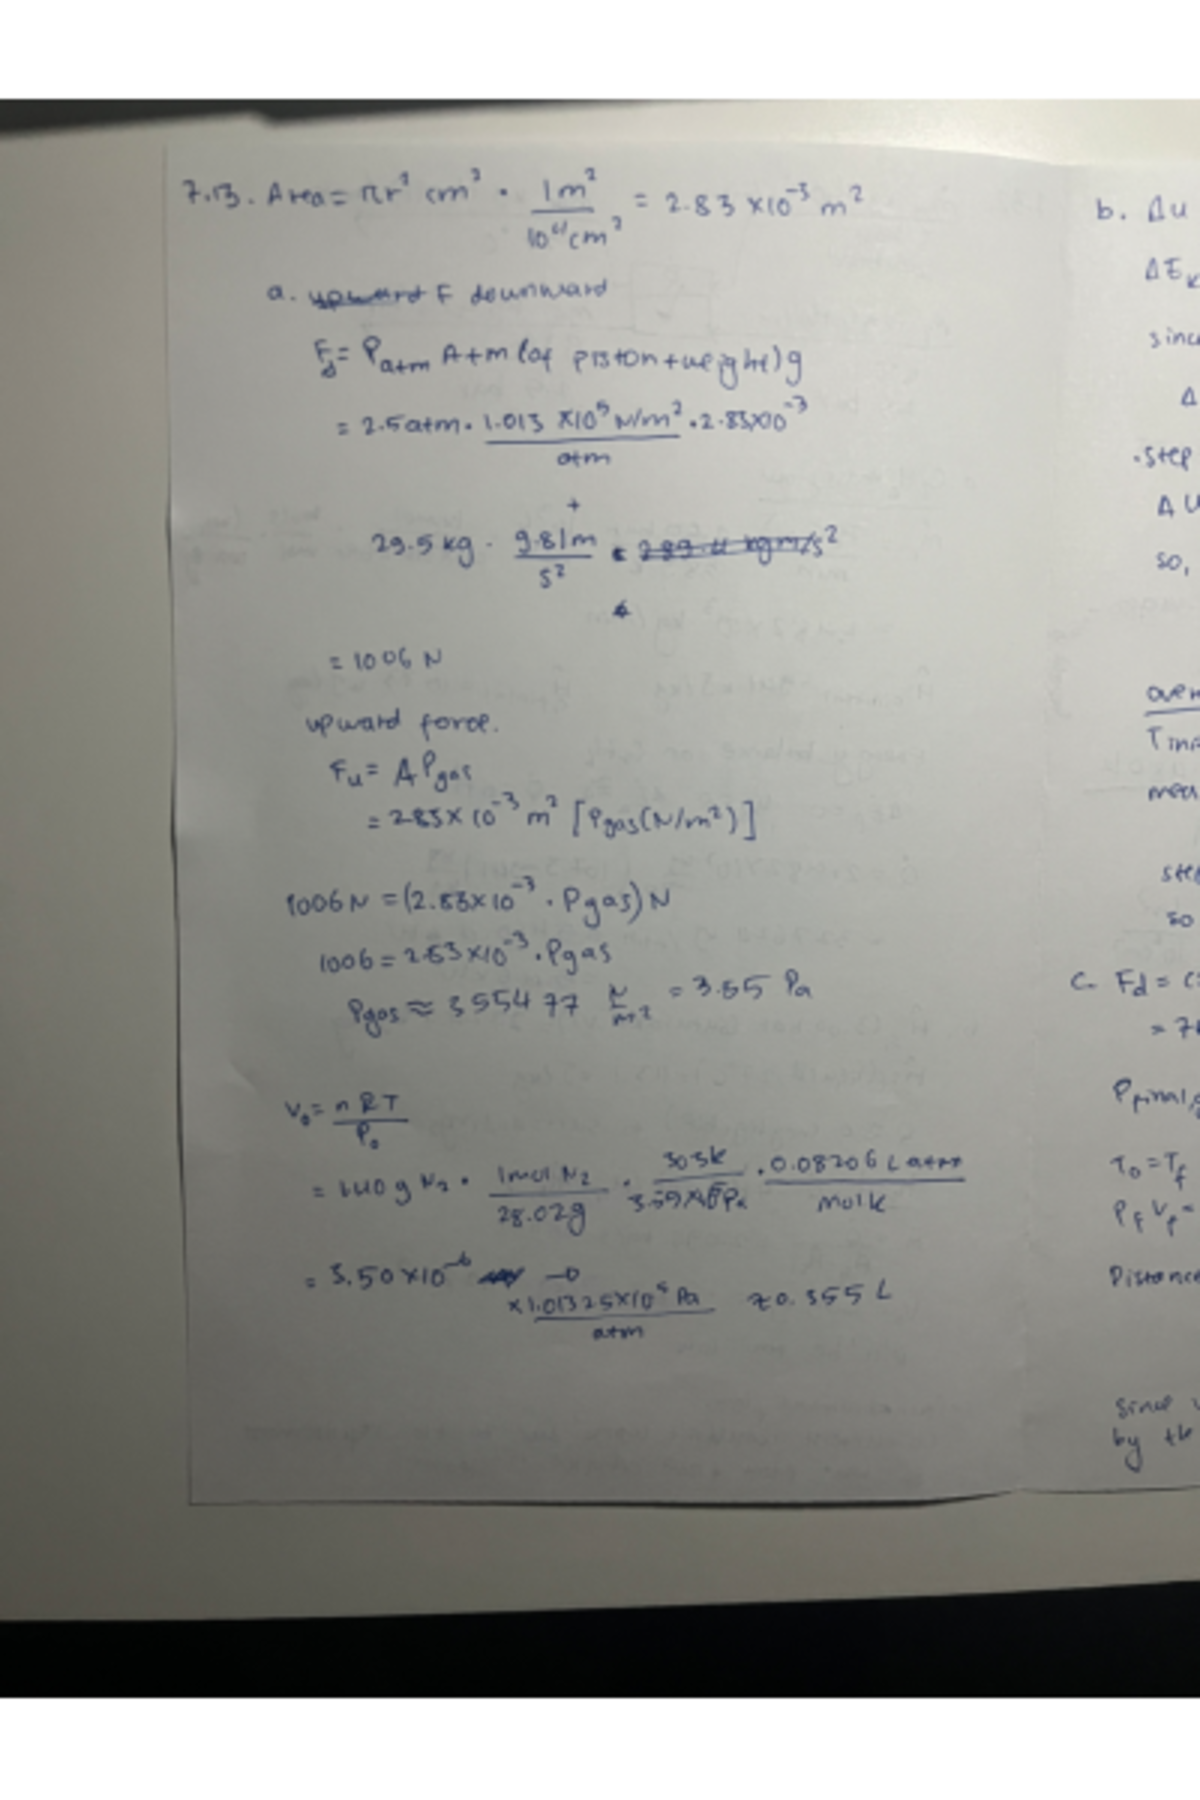 7.13. Area = πr² cm² · 1m² / 10⁴ cm² = 2.83 × 10⁻³ m²
a. upward F downward
F_d = P_atm A + m (of piston + weight) g
= 2.5 atm · 1.013 × 10⁵ N/m² / atm · 2.83×10⁻³
+
29.5 kg · 9.81 m / s²
= 1006 N
upward force.
F_u = A P_gas
= 2.83 × 10⁻³ m² [P_gas (N/m²)]
1006 N = (2.83 × 10⁻³ · P gas) N
1006 = 2.83 × 10⁻³ · P gas
P gas ≈ 355477 N/m² = 3.55 Pa
V₀ = nRT / P₀
= 1.40 g N₂ · 1 mol N₂ / 28.02g · 303K / Pa · 0.08206 L atm / mol K
= 3.50 × 10⁻⁶ →
× 1.01325 × 10⁵ Pa / atm ≈ 0.355 L
b. Δu
ΔE_k
since
Δ
· step
ΔU
so,
over
Tini
mea
ste
so
c. Fd = (
= 7
P final,g
T₀ = T_f
P_f V_f =
Distance
since
by th